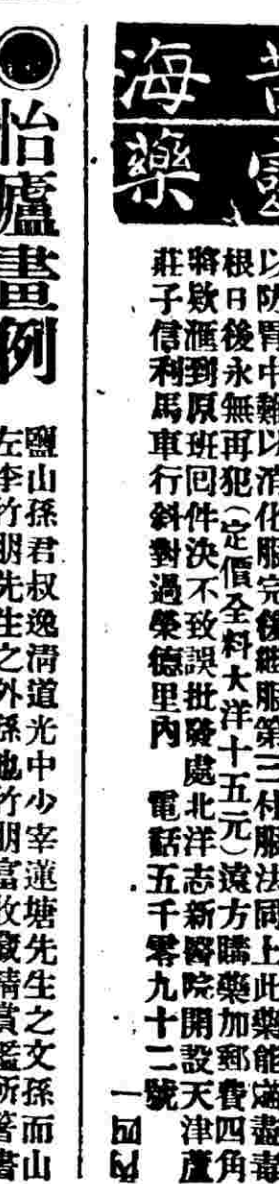 海
藥
以防胃中難以消化服完後繼服第三付服法同上此藥能滅盡毒
根日後永無再犯(定價全料大洋十五元)遠方購藥加郵費四角
將欵滙到原班回件決不致誤批發處北洋志新醫院開設天津蘆
莊子信利馬車行斜對過榮德里內 電話五千零九十二號
一四內
怡廬畫例
鹽山孫君叔逸清道光中少宰蓮塘先生之文孫而山
左李竹朋先生之外孫也竹朋富收藏精賞鑑所著書